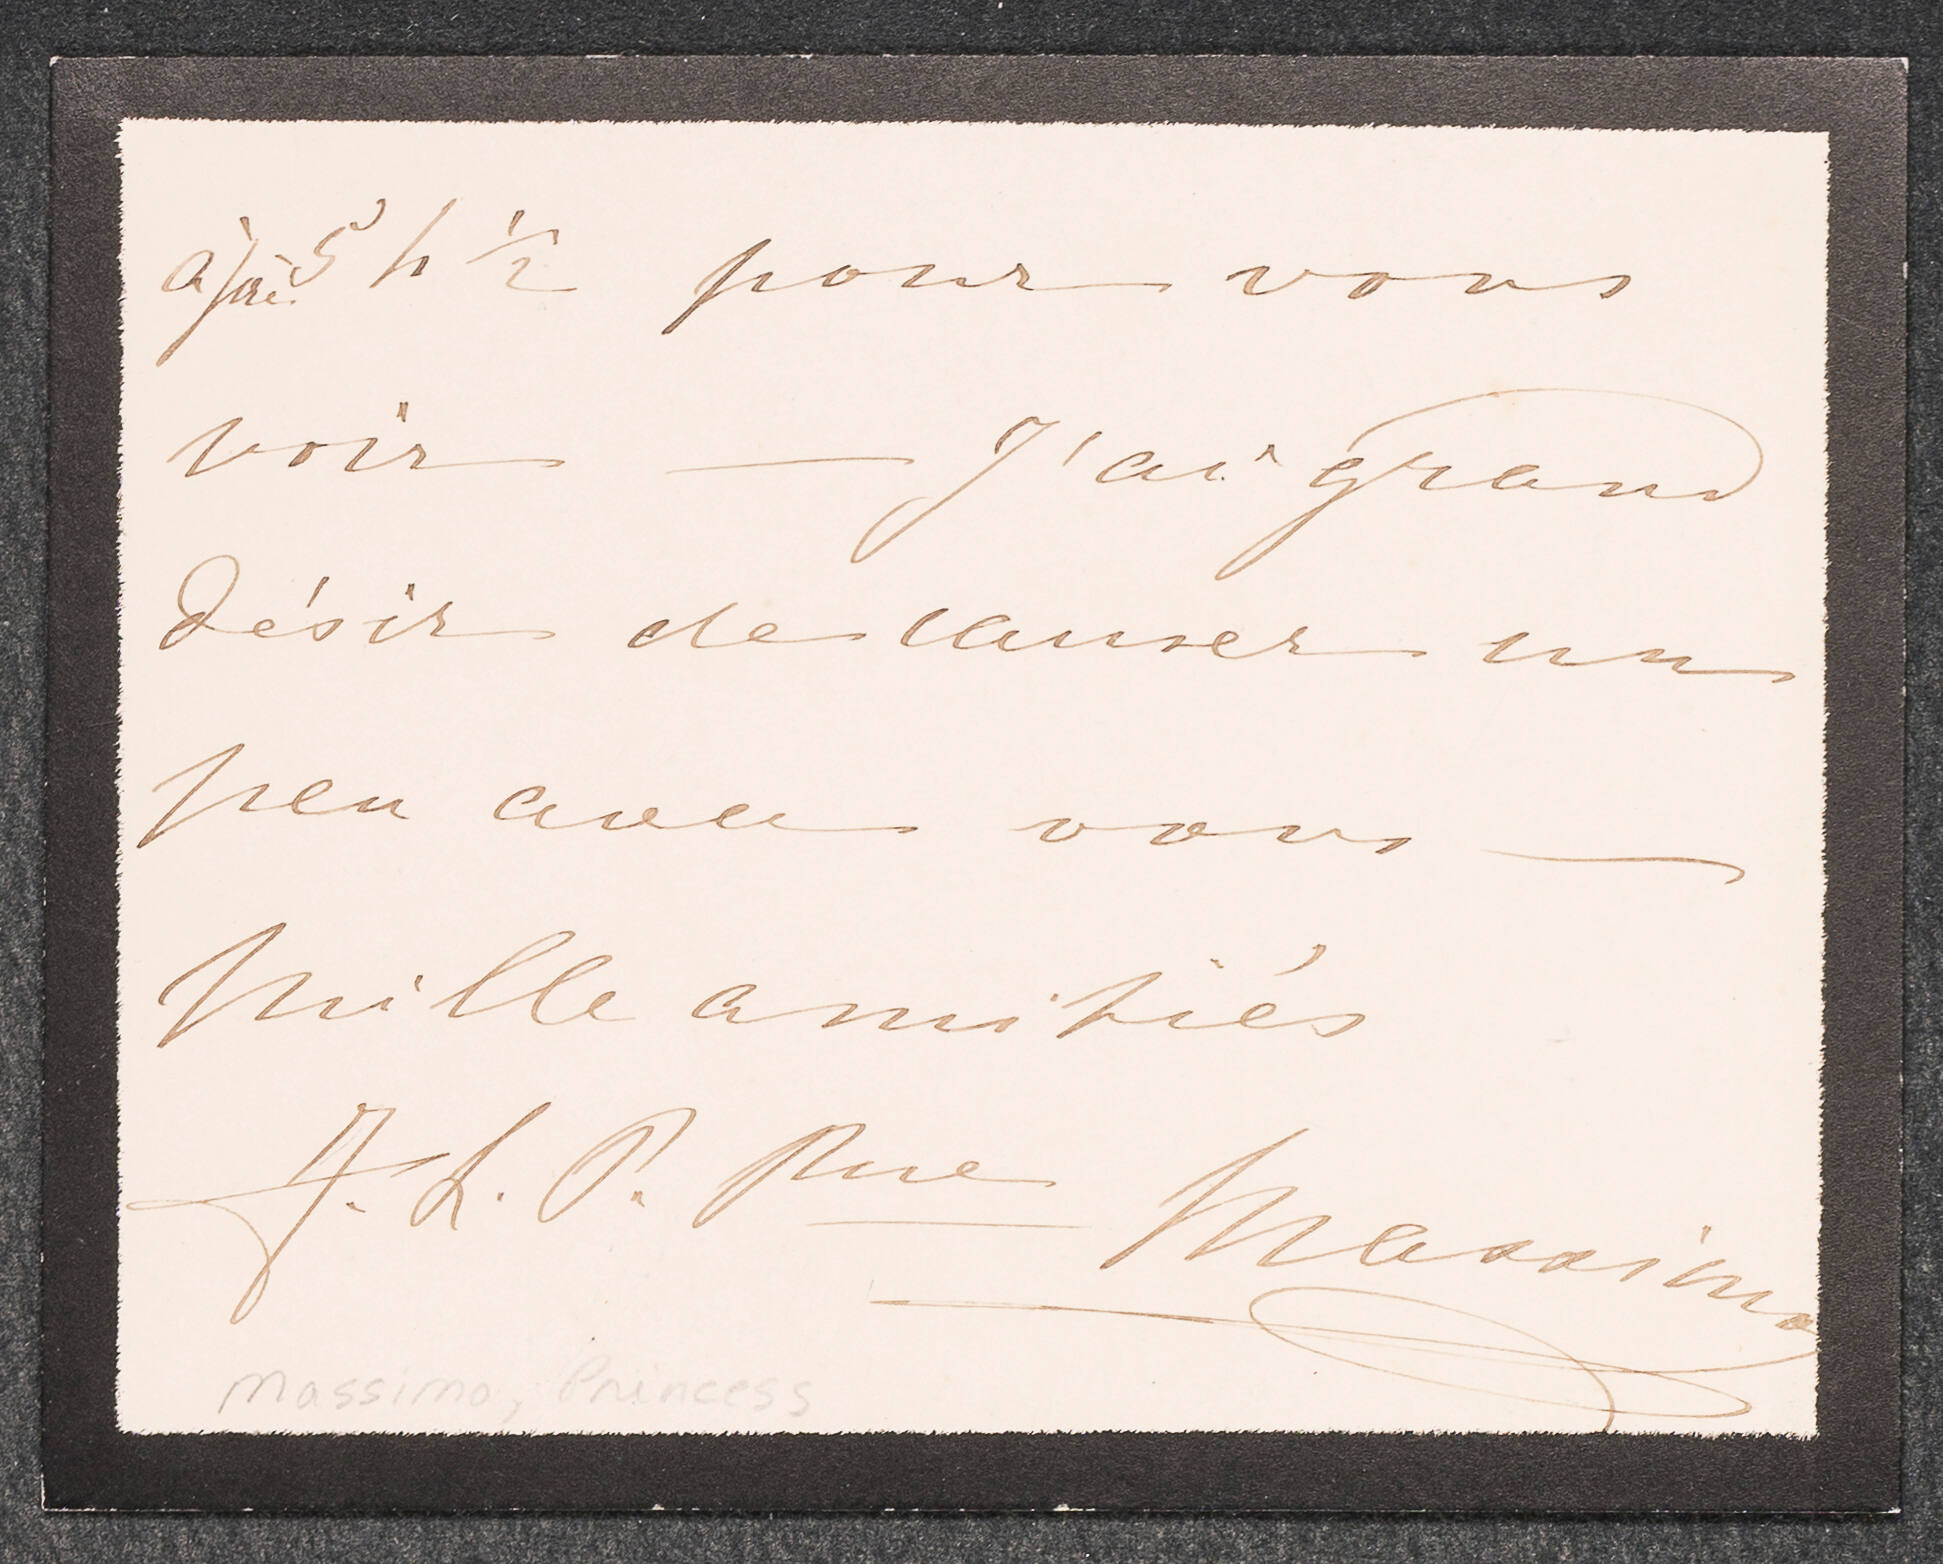 à 5 h 1/2 pour vous
voir — J'ai grand
désir de causer un
peu avec vous —
Mille amitiés
F. L. P. Pne Massimo
Massimo, Princess